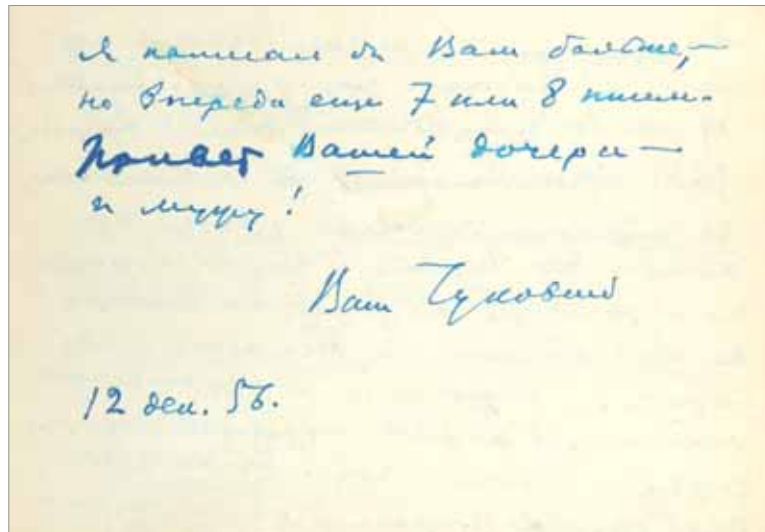 Я написал бы Вам больше,—
но впереди еще 7 или 8 писем.
Привет Вашей дочери—
и мужу!
Ваш Чуковский
12 дек. 56.